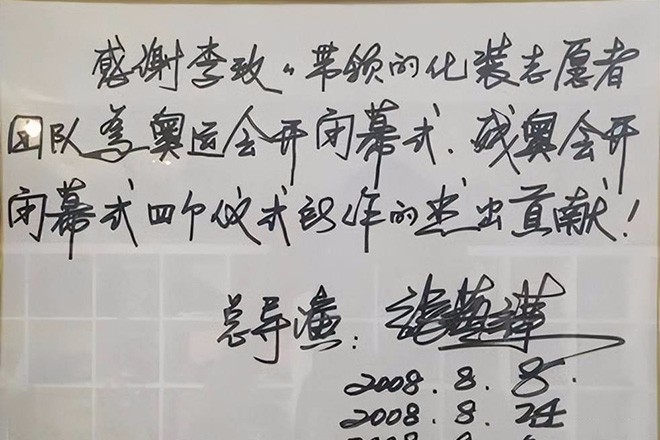 感谢李玫带领的化装志愿者
团队为奥运会开闭幕式、残奥会开
闭幕式四个仪式所作的杰出贡献！
总导演：张艺谋
2008.8.8.
2008.8.24
2008.